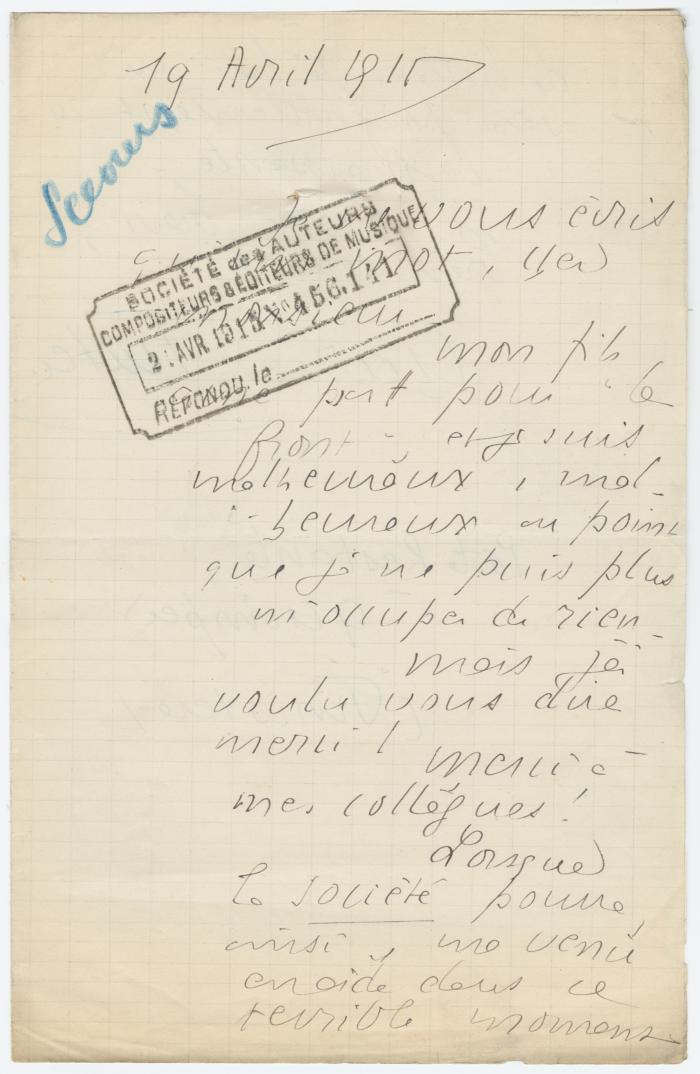 19 Avril 1915
Secours
SOCIÉTÉ des AUTEURS
COMPOSITEURS & ÉDITEURS DE MUSIQUE
2 AVR. 1915 No 456.141
RÉPONDU, le
Je vous écris
mot, cher
Monsieur
mon fils
part pour "le
front", et je suis
malheureux, mal-
"heureux au point
que je ne puis plus
m'occuper de rien-
mais j'ai
voulu vous dire
merci! merci à
mes collègues!
Lorsque
la société pourra,
ainsi, me venir
en aide dans ce
terrible moment